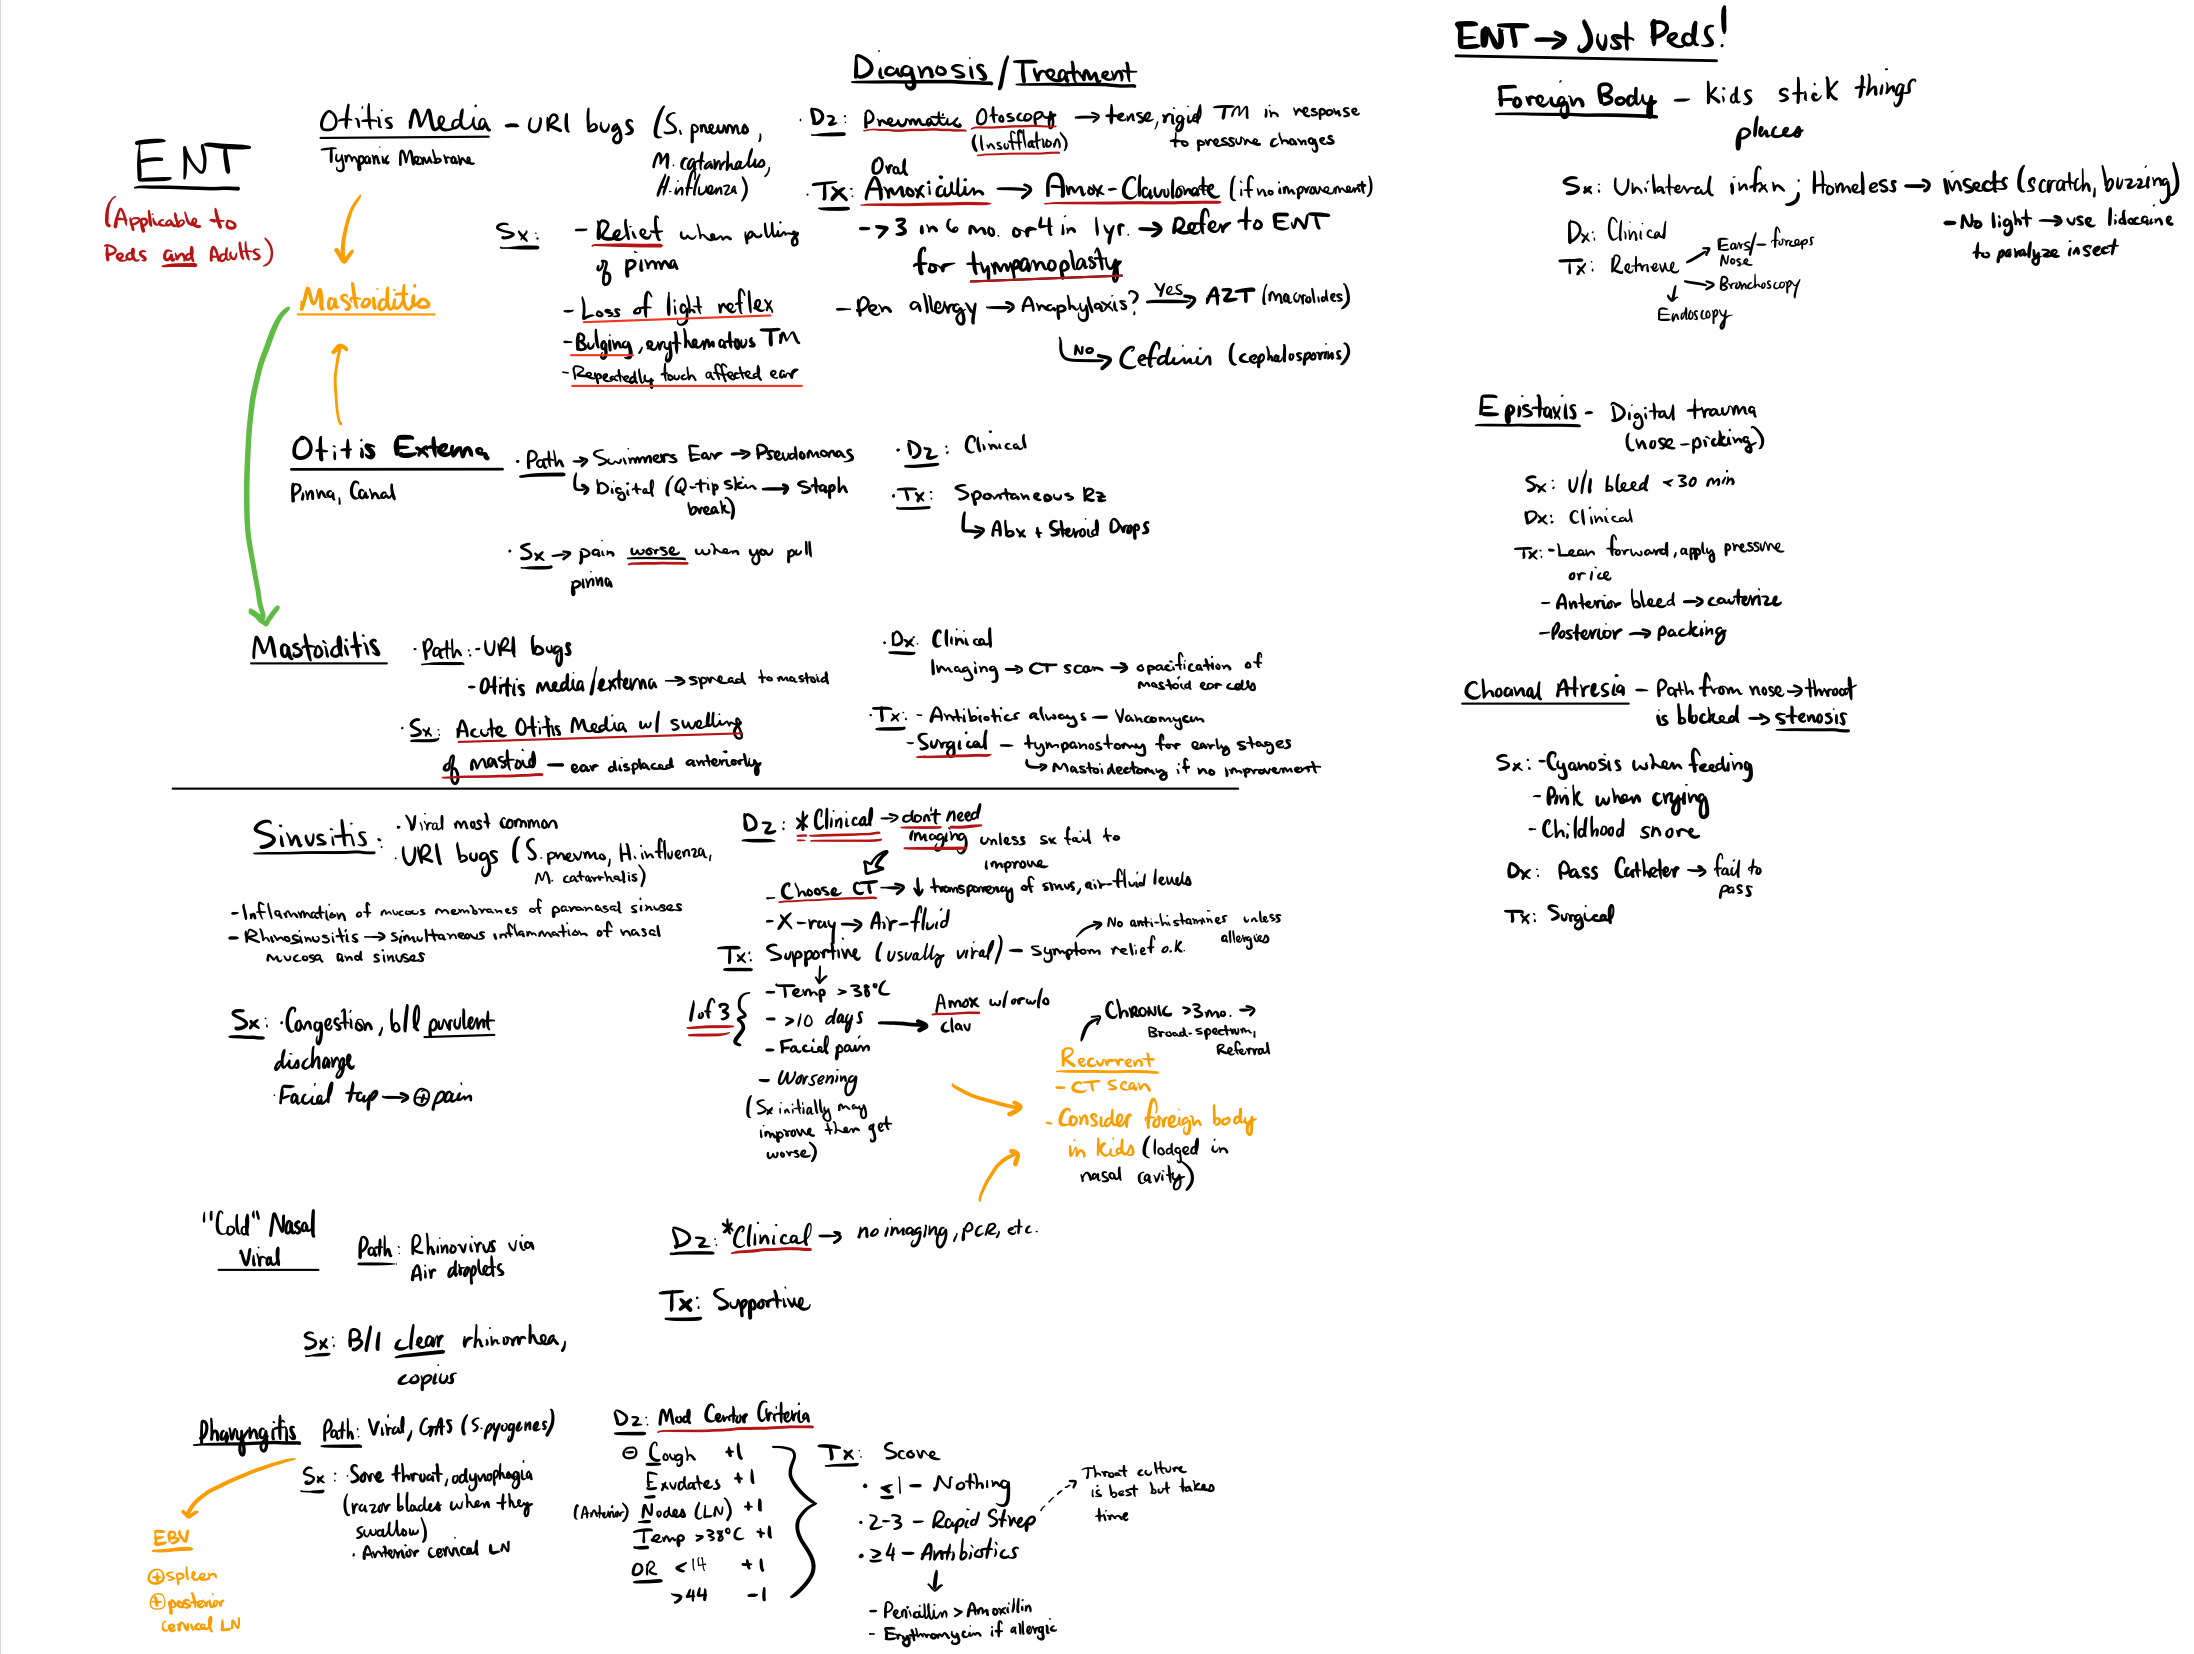 ENT
(Applicable to
Peds and Adults)
Diagnosis / Treatment
Otitis Media - URI bugs (S. pneumo,
M. catarrhalis,
H. influenza)
Tympanic Membrane
Sx: - Relief when pulling
of pinna
- Loss of light reflex
- Bulging, erythematous TM
- Repeatedly touch affected ear
· Dz: Pneumatic Otoscopy → tense, rigid TM in response
(Insufflation) to pressure changes
Oral
· Tx: Amoxicillin → Amox-Clavulonate (if no improvement)
- >3 in 6 mo. or 4 in 1yr. → Refer to ENT
for tympanoplasty
- Pen allergy → Anaphylaxis? Yes → AZT (macrolides)
NO → Cefdinir (cephalosporins)
Mastoiditis
Otitis Externa
Pinna, Canal
· Path → Swimmers Ear → Pseudomonas
↳ Digital (Q-tip skin → Staph
break)
· Sx → pain worse when you pull
pinna
· Dz: Clinical
· Tx: Spontaneous Rz
↳ Abx + Steroid Drops
Mastoiditis
· Path: - URI bugs
- Otitis media/externa → spread to mastoid
· Sx: Acute Otitis Media w/ swelling
of mastoid - ear displaced anteriorly
· Dx: Clinical
Imaging → CT scan → opacification of
mastoid ear cells
· Tx: - Antibiotics always - Vancomycin
- Surgical - tympanostomy for early stages
↳ Mastoidectomy if no improvement
Sinusitis: · Viral most common
· URI bugs (S. pneumo, H. influenza,
M. catarrhalis)
- Inflammation of mucous membranes of paranasal sinuses
- Rhinosinusitis → simultaneous inflammation of nasal
mucosa and sinuses
Sx: · Congestion, b/l purulent
discharge
· Facial tap → ⊕ pain
Dz: *Clinical → don't need
imaging unless sx fail to
improve
- Choose CT → ↓ transparency of sinus, air-fluid levels
- X-ray → Air-fluid
→ No anti-histamines unless
allergies
Tx: Supportive (usually viral) - symptom relief o.k.
↓
1 of 3 { - Temp >38°C
- >10 days → Amox w/ or w/o
clav
- Facial pain
- Worsening
(Sx initially may
improve then get
worse)
→ CHRONIC >3mo. →
Broad-spectrum,
Referral
Recurrent
- CT scan
- Consider foreign body
in kids (lodged in
nasal cavity)
"Cold" Nasal
Viral
Path: Rhinovirus via
Air droplets
Sx: B/l clear rhinorrhea,
copius
Dz: *Clinical → no imaging, PCR, etc.
Tx: Supportive
Pharyngitis Path: Viral, GAS (S. pyogenes)
Sx: · Sore throat, odynophagia
(razor blades when they
swallow)
· Anterior cervical LN
EBV
⊕ spleen
⊕ posterior
cervical LN
Dz: Mod Centor Criteria
⊖ Cough +1
Exudates +1
(Anterior) Nodes (LN) +1
Temp >38°C +1
OR <14 +1
>44 -1
Tx: Score
· ≤1 - Nothing
· 2-3 - Rapid Strep
· ≥4 - Antibiotics
↓
- Penicillin > Amoxillin
- Erythromycin if allergic
Throat culture
is best but takes
time
ENT → Just Peds!
Foreign Body - kids stick things
places
Sx: Unilateral infxn; Homeless → insects (scratch, buzzing)
- No light → use lidocaine
to paralyze insect
Dx: Clinical
Tx: Retrieve → Ears/ - forceps
Nose
→ Bronchoscopy
↓
Endoscopy
Epistaxis - Digital trauma
(nose-picking)
Sx: U/l bleed <30 min
Dx: Clinical
Tx: - Lean forward, apply pressure
or ice
- Anterior bleed → cauterize
- Posterior → packing
Choanal Atresia - Path from nose → throat
is blocked → stenosis
Sx: - Cyanosis when feeding
- Pink when crying
- Childhood snore
Dx: Pass Catheter → fail to
pass
Tx: Surgical